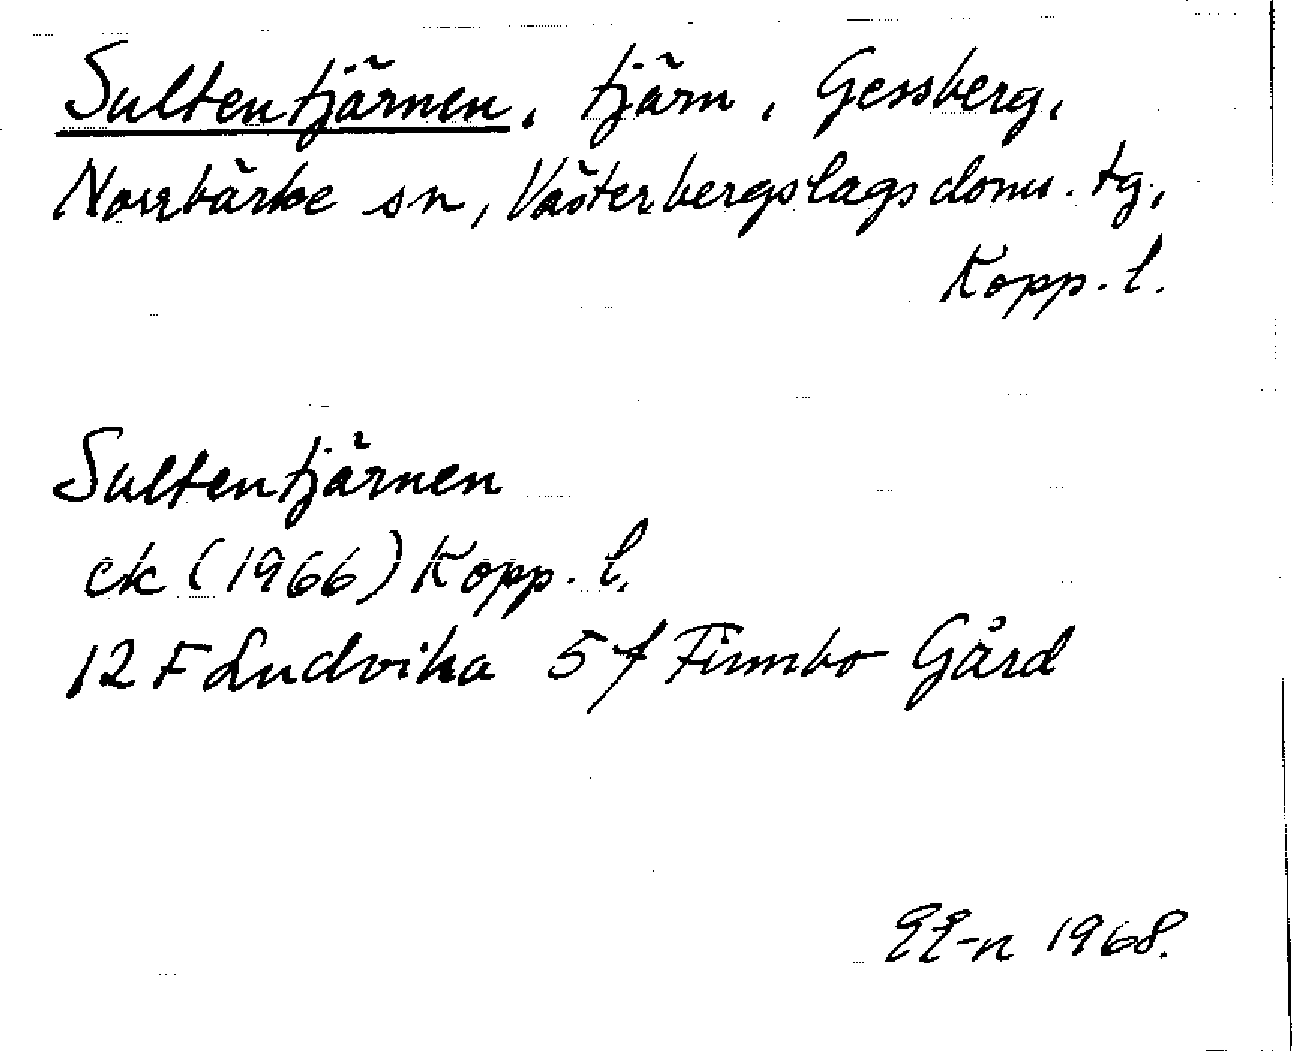 Sultentjärnen, tjärn, Gessberg,
Norrbärke sn, Västerbergslags doms. tg,
Kopp. l.
Sultentjärnen
ek (1966) Kopp. l.
12 F Ludvika 5 f Finnbo Gård
1968.